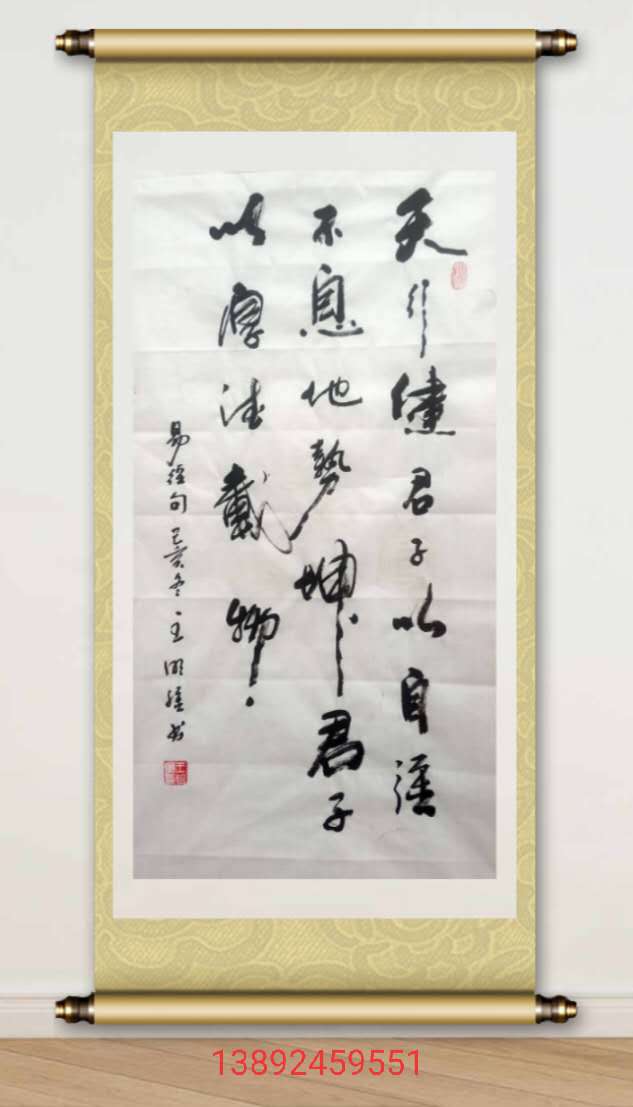 天行健君子以自强
不息地势坤君子
以厚德载物
易经句己亥冬王明 书
13892459551